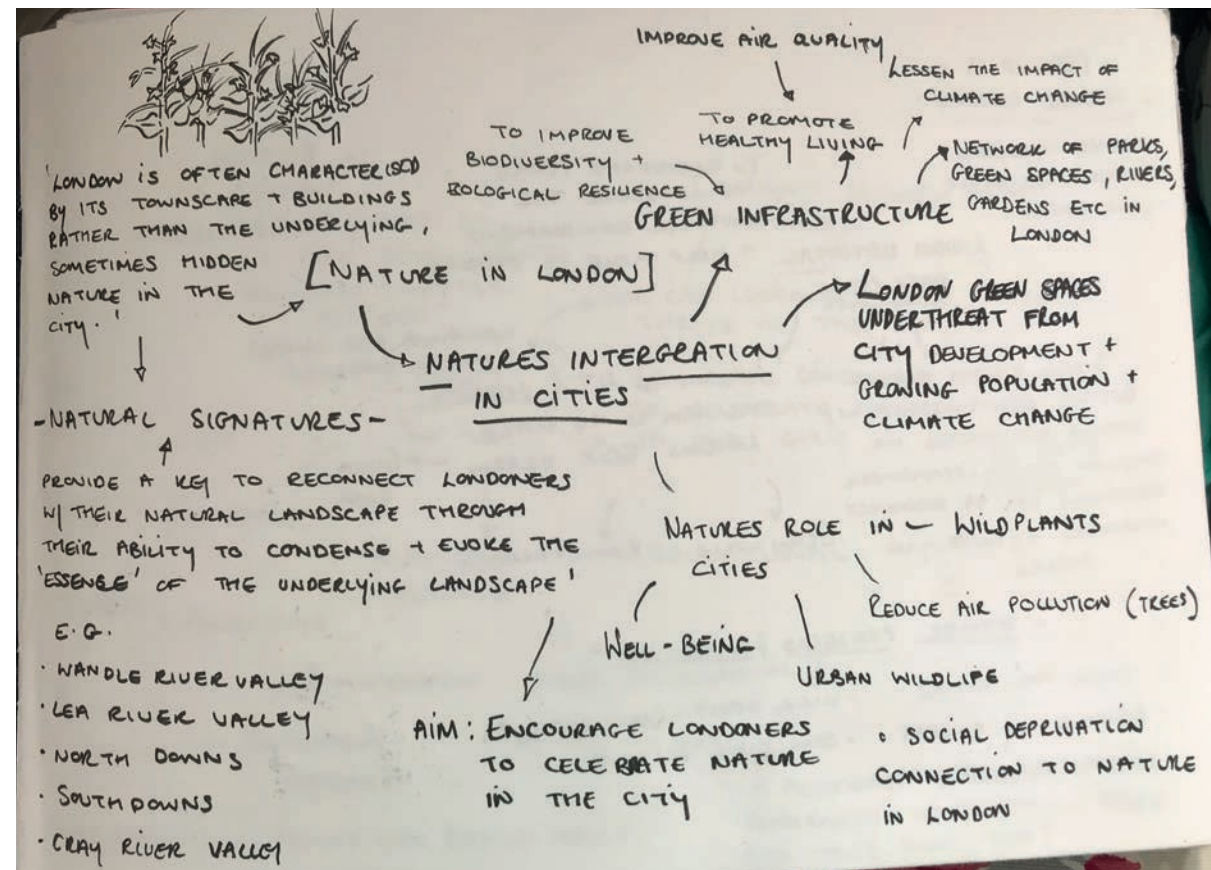 IMPROVE AIR QUALITY
LESSEN THE IMPACT OF
CLIMATE CHANGE
TO PROMOTE
HEALTHY LIVING
TO IMPROVE
BIODIVERSITY +
BOLOGICAL RESILIENCE
NETWORK OF PARKS,
GREEN SPACES, RIVERS,
GARDENS ETC IN
LONDON
GREEN INFRASTRUCTURE
'LONDON IS OFTEN CHARACTERISED
BY ITS TOWNSCAPE + BUILDINGS
RATHER THAN THE UNDERLYING,
SOMETIMES HIDDEN
NATURE IN THE
CITY.'
[NATURE IN LONDON]
NATURES INTERGRATION
IN CITIES
LONDON GREEN SPACES
UNDERTHREAT FROM
CITY DEVELOPMENT +
GROWING POPULATION +
CLIMATE CHANGE
- NATURAL SIGNATURES -
PROVIDE A KEY TO RECONNECT LONDONERS
W/ THEIR NATURAL LANDSCAPE THROUGH
THEIR ABILITY TO CONDENSE + EVOKE THE
'ESSENCE' OF THE UNDERLYING LANDSCAPE'
E.G.
· WANDLE RIVER VALLEY
· LEA RIVER VALLEY
· NORTH DOWNS
· SOUTH DOWNS
· CRAY RIVER VALLEY
NATURES ROLE IN - WILD PLANTS
CITIES
REDUCE AIR POLLUTION (TREES)
WELL-BEING
URBAN WILDLIFE
AIM: ENCOURAGE LONDONERS
TO CELEBRATE NATURE
IN THE CITY
· SOCIAL DEPRIVATION
CONNECTION TO NATURE
IN LONDON